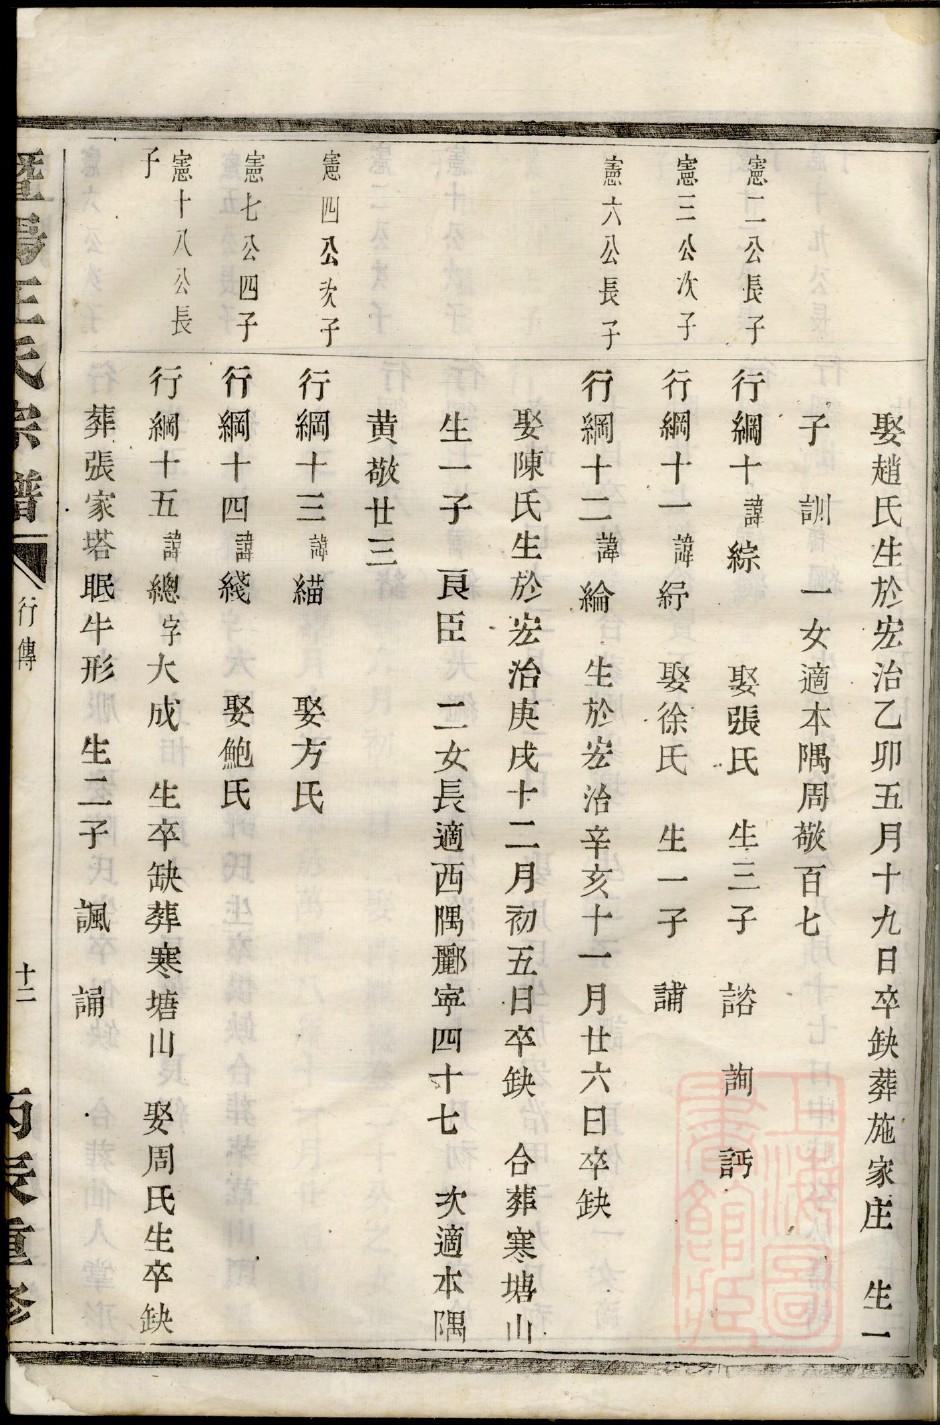 娶趙氏生於宏治乙卯五月十九日卒缺葬施家庄 生一
子 訓 一女適本隅周敬百七
憲二公長子
行綱十諱綜 娶張氏 生三子 諮 詢 謣
憲三公次子
行綱十一諱紓 娶徐氏 生一子 誧
憲六公長子
行綱十二諱綸 生於宏治辛亥十一月廿六日卒缺
娶陳氏生於宏治庚戌十二月初五日卒缺 合葬寒塘山
生一子 良臣 二女長適西隅酈寜四十七 次適本隅
黄敬廿三
憲四公次子
行綱十三諱緢 娶方氏
憲七公四子
行綱十四諱綫 娶鮑氏
憲十八公長子
行綱十五諱總字大成 生卒缺葬寒塘山 娶周氏生卒缺
葬張家塔眠牛形 生二子 諷 誦
暨陽王氏宗譜
行傳
十二
丙辰重修